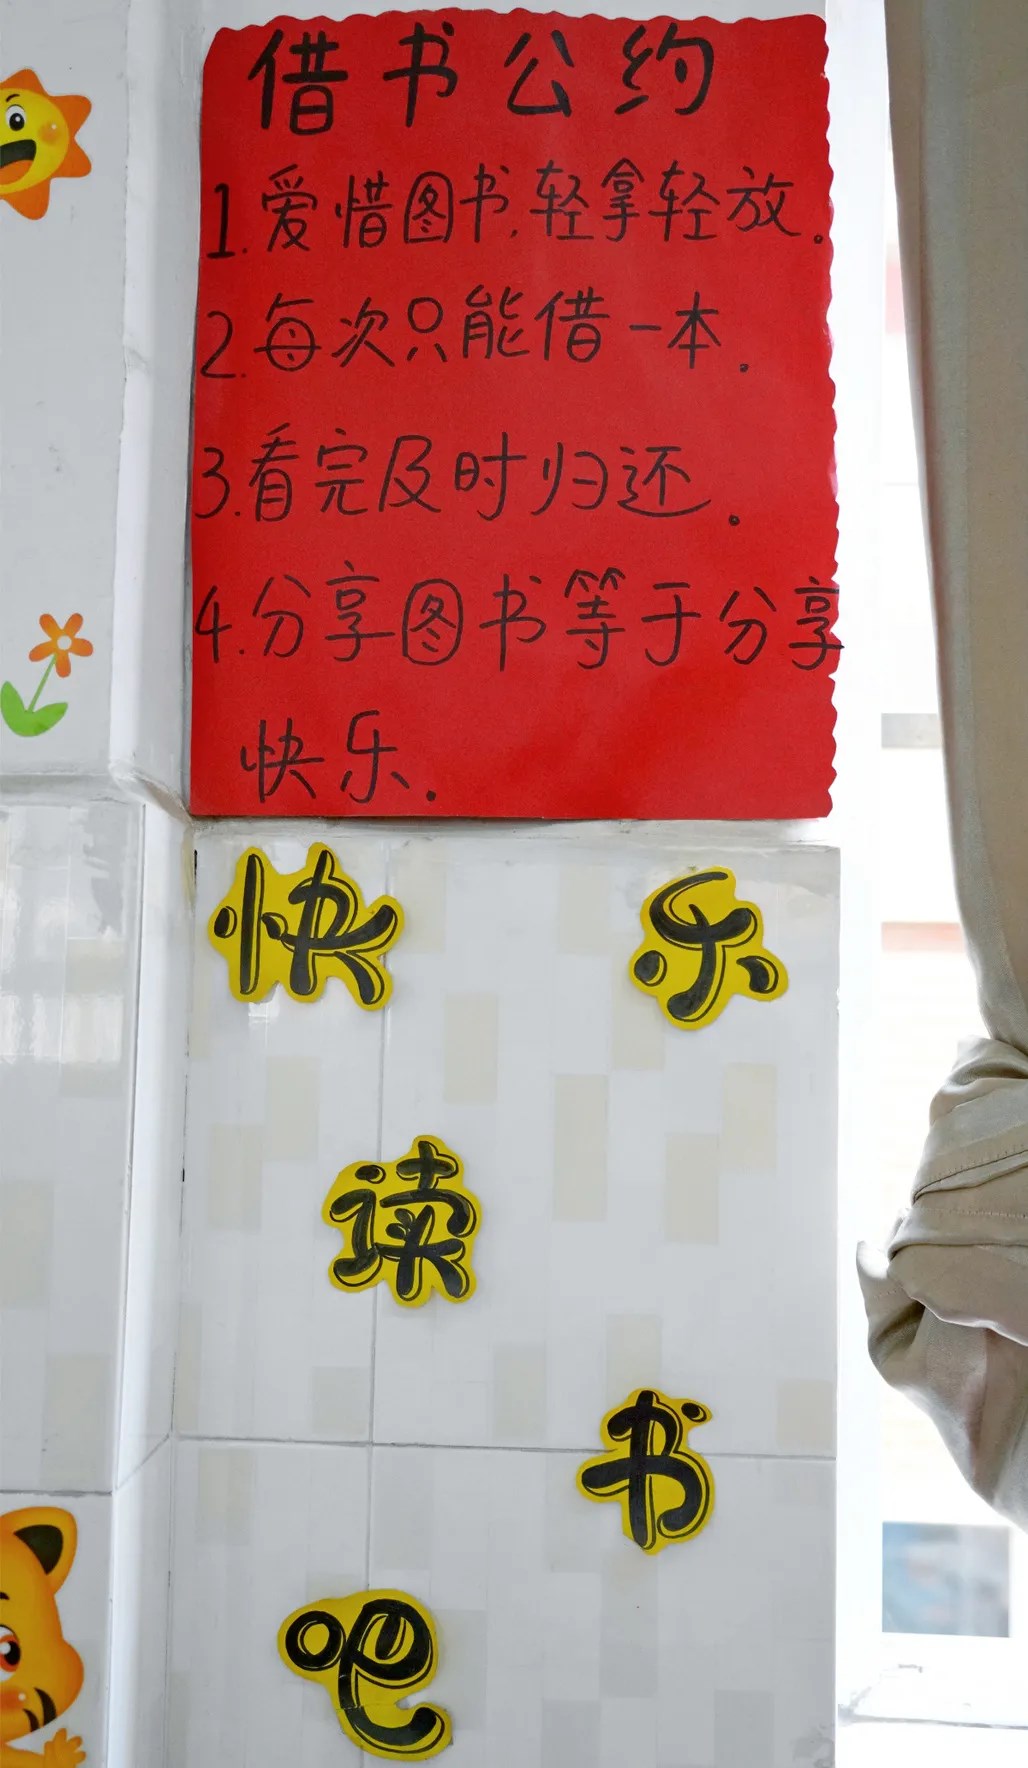 借书公约
1.爱惜图书,轻拿轻放。
2.每次只能借一本.
3.看完及时归还.
4.分享图书等于分享
快乐.
快乐
读
书
吧